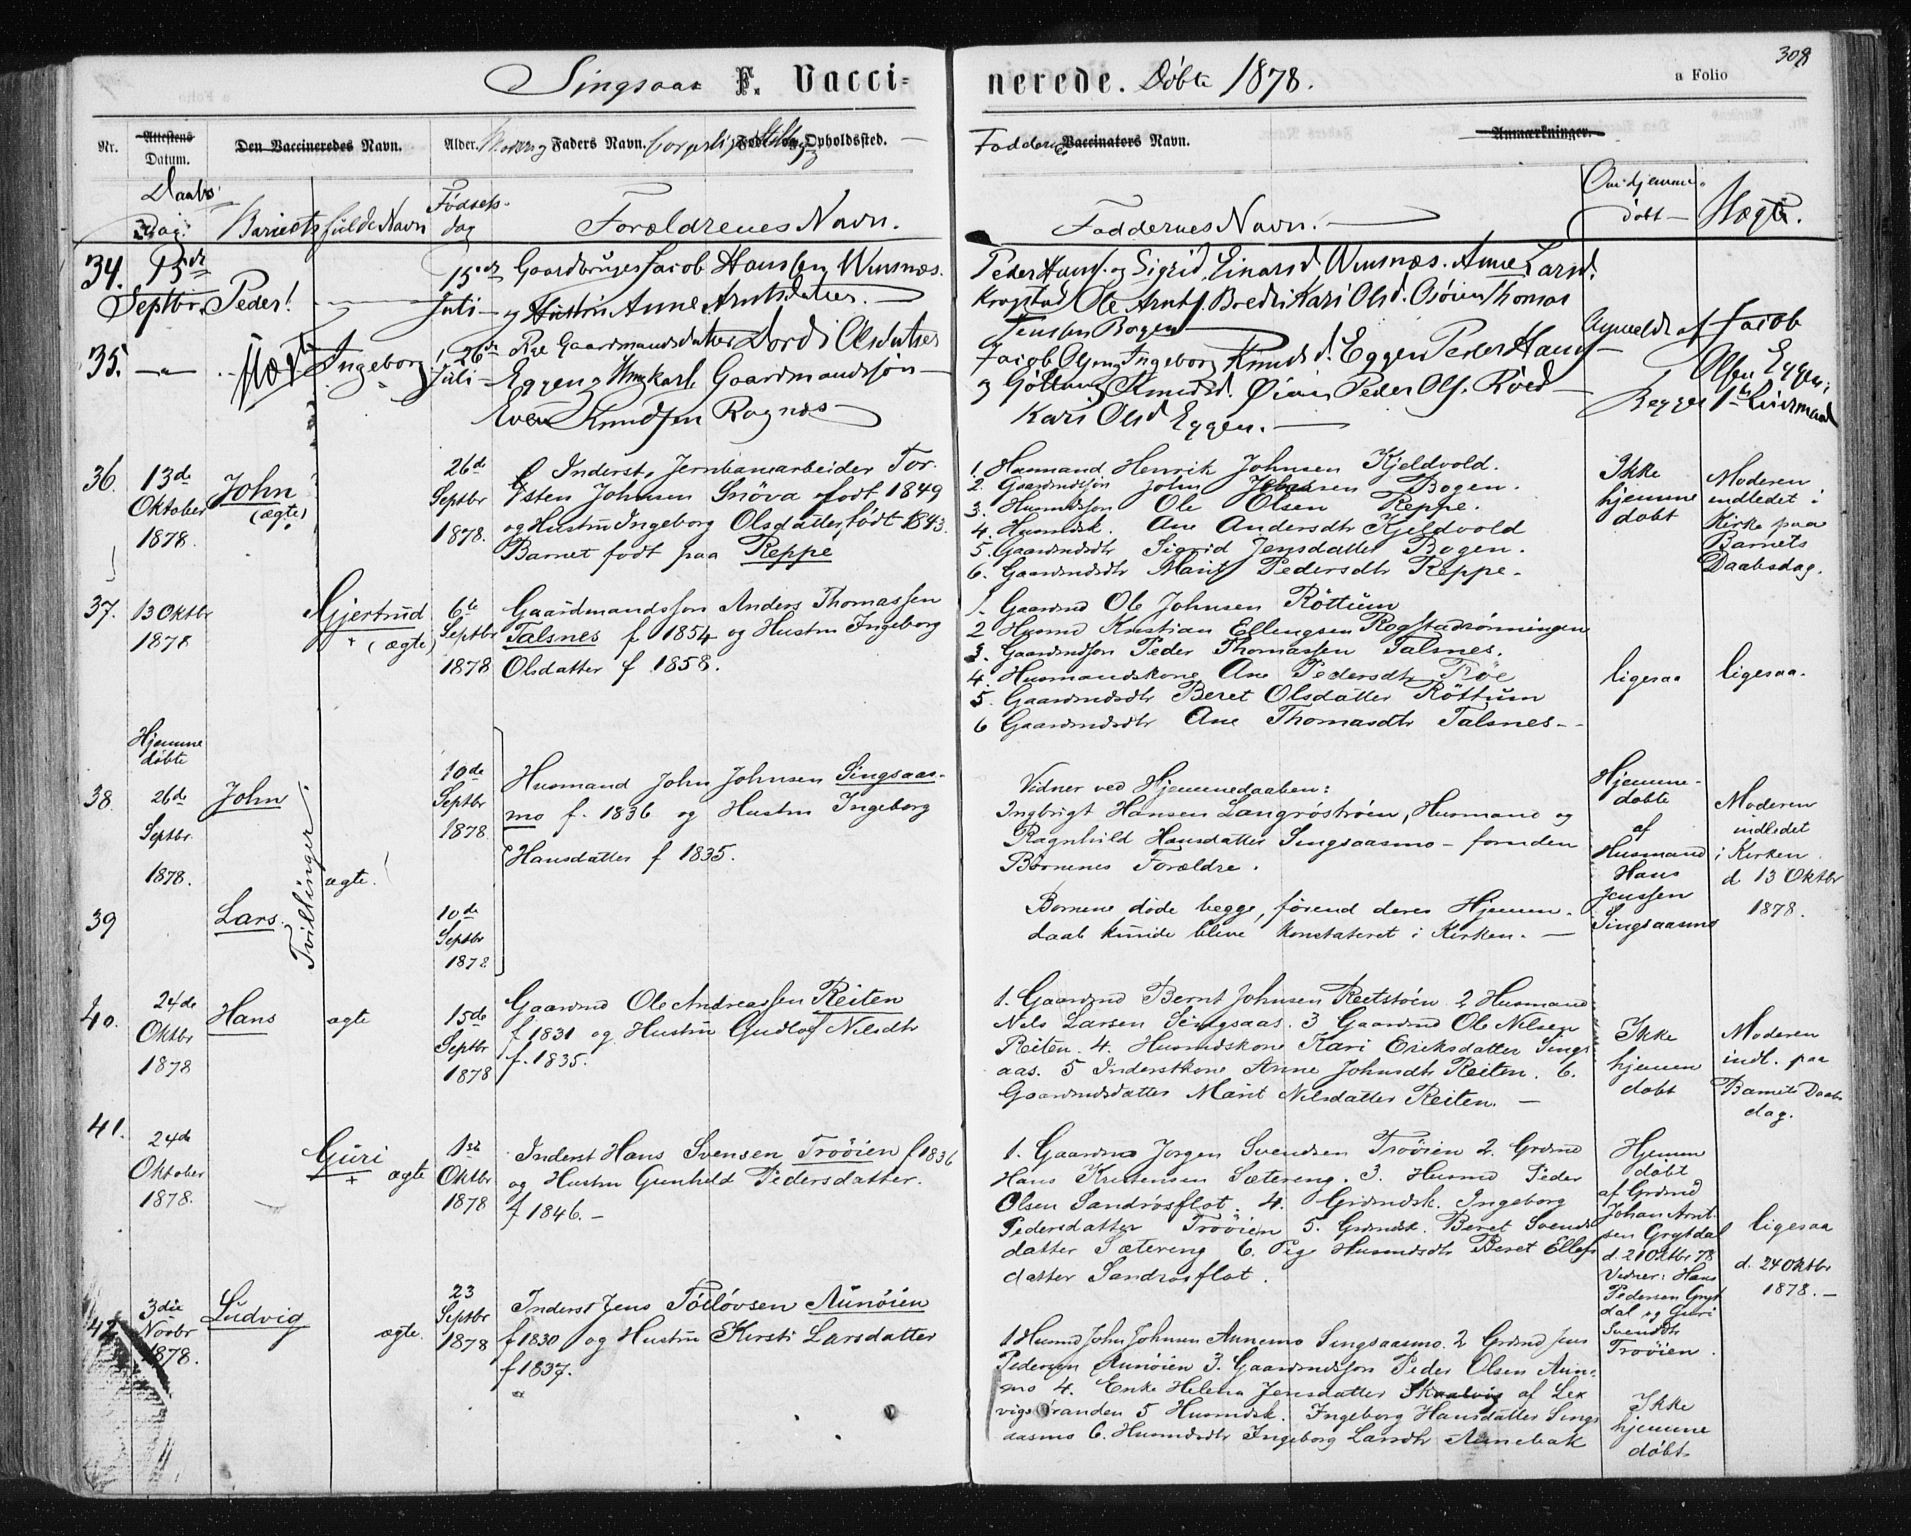 308
Singsaas F. Vacci-
nerede. Døbte 1878.
a Folio
Nr. Attestens Datum. Den Vaccineredes Navn. Alder. Faders Navn. Opholdssted.
Fadderne Vaccinators Navn. Anmærkninger.
Daabs Dag. Barnets fulde Navn Fødsels-dag Forældrenes Navn.
Faddernes Navn. Om hjemme-døbt
34. 15de Septbr. Peder!
15de Juli
Gaardbruger Jacob Hansen Winsnæs
og Hustru Anne Arntsdatter.
Peder Hans. og Sigrid Einarsd. Winsnæs. Anne Larsd.
Krogstad Ole Arnts. Bredli Kari Olsd. Thomas
Jensen Bogen
35. Ingeborg
26de Juli
Gaardmandsdatter Dordi Olsdatter
Eggen og Ungkarl Gaardmandssøn
Knudsen Ragnæs
Jacob Ols. og Ingeborg Knudsd. Eggen Peder Hans.
og Peder Ols. Röed
Kari Olsd Eggen.
af Jacob
Olsen Eggen
Begge 1ste Leiermaal
36. 13de Oktober 1878.
John (ægte)
26de Septbr 1878.
Inderst, Jernbanearbeider Tor-
sten Johnsen Snöva født 1849
og Hustru Ingeborg Olsdatter, født 1843.
Barnet født paa Reppe
1. Husmand Henrik Johnsen Kjeldvold.
2. Gaardmdssøn John Jensen Bogen.
3. Husmdssøn Ole Olsen Reppe.
4. Husmdsk. Ane Andersdtr Kjeldvold
5. Gaardmdsdtr Sigrid Jensdatter Bogen.
6. Gaardmdsdtr Marit Pedersdtr Reppe.
Ikke hjemme døbt
Moderen indledet i Kirke paa Barnets Daabsdag.
37. 13 Oktbr 1878
Gjertrud + (ægte)
6te Septbr 1878
Gaardmandssøn Anders Thomassen
Talsnes f 1854 og Hustru Ingeborg
Olsdatter f 1858.
1. Gaardmd Ole Johnsen Röttum
2 Husmd Kristian Ellengsen Rogstadrönningen
3. Gaardmdssøn Peder Thomassen Talsnes.
4. Husmandskone Ane Pedersdtr Röe
5. Gaardmdsdtr Beret Olsdatter Röttum
6 Gaardmdsdtr Ane Thomasdtr Talsnes
ligesaa
ligesaa.
Hjemme døbte
38. 26de Septbr 1878.
John
Tvillinger. ægte.
10de Septbr 1878
Husmand John Johnsen Singsaas-
mo f. 1836 og Hustru Ingeborg
Hansdatter f 1835.
Vidner ved Hjemmedaaben:
Ingbrigt Hansen Langröströen, Husmand og
Ragnhild Hansdatter Singsaasmo – foruden
Børnenes Forældre.
Hjemme-døbte af Husmand Hans Jenssen Singsaasmo
Moderen indledet i Kirken d 13 Oktbr 1878.
39 Lars.
10de Septbr 1878
Børnene døde begge, førend deres Hjemme-
daab kunde blive konstateret i Kirken.
40. 24de Oktbr 1878
Hans ægte
15de Septbr 1878
Gaardmd Ole Andreassen Reiten
f 1831 og Hustru Gudlof Nilsdtr
f. 1835.
1. Gaardmd Bernt Johnsen Reitstöen 2 Husmand
Nils Larsen Singsaas. 3 Gaardmd Ole Nilsen
Reiten. 4. Husmdskone Kari Eriksdatter Sings-
aas. 5 Inderstkone Anne Johnsdtr Reiten. 6.
Gaardmdsdatter Marit Nilsdatter Reiten.
Ikke hjemme døbt
Moderen indl. paa Barnets Daabs dag.
41. 24de Oktober 1878.
Guri + ægte
1ste Oktbr 1878
Inderst Hans Svensen Trööien f 1836
og Hustru Gunhild Pedersdatter.
f 1846.
1. Gaardmd Jørgen Svendsen Trööien 2. Grdmd
Hans Kristensen Sætereng. 3. Husmd Peder
Olsen Sandrösflot. 4. Grdmdsk. Ingeborg
Pedersdatter Trööien 5. Grdmdsk. Beret Svends
datter Sætereng 6. Pige Husmdsdtr Beret Ellefs
datter Sandrösflot.
Hjemme døbt af Grdmd Johan Arnt-sen Grytdal d. 21 Oktbr 78 Vidner: Hans Pedersen Gryt dal og Guri Svendsdtr Trööien.
ligesaa d. 24 Oktbr 1878.
42 3die Novbr 1878.
Ludvig ægte.
23 Septbr 1878
Inderst Jens Töllövsen Aunöien
f 1830 og Hustru Kirsti Larsdatter
f 1837.
1 Husmd John Johnsen Singsaasmo. 2 Grdmd Jens
Pedersen Aunöien 3. Gaardmdssøn Peder Olsen Aun-
mo 4. Enke Helena Jensdatter af Lex
vigstranden 5 Husmdsk. Ingeborg Hansdatter Sings
aasmo 6. Husmdsdtr Ingeborg Larsdtr Aunebak
Ikke hjemme døbt